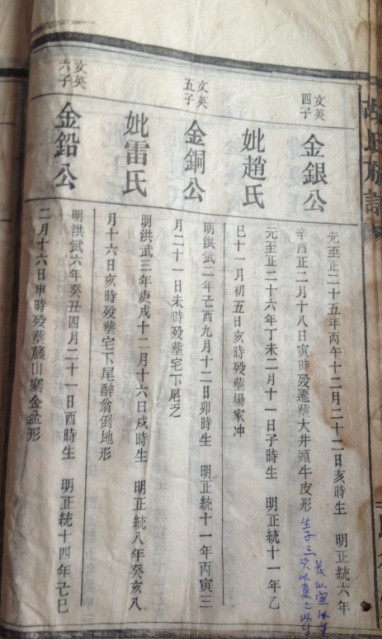 文英
四子
金銀公
元至正二十五年丙午十二月二十二日亥時生　明正統六年
辛酉正二月十八日寅時殁遷葬大井頭牛皮形
妣趙氏
元至正二十六年丁未二月十一日子時生　明正統十一年乙
巳十一月初五日亥時殁葬楊家冲
文英
五子
金銅公
明洪武二年己酉九月十二日卯時生　明正統十一年丙寅三
月二十一日未時殁葬宅下尾乏
妣雷氏
明洪武三年庚戌十二月十六日戌時生　明正統八年癸亥八
月十六日亥時殁葬宅下尾醉翁倒地形
文英
六子
金鉛公
明洪武六年癸丑四月二十一日酉時生　明正統十四年己巳
二月十六日申時殁葬藤山寨金盆形